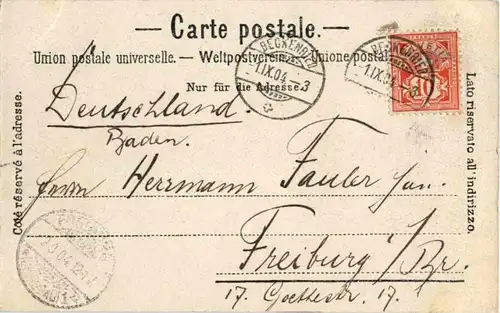 Carte postale.
Union postale universelle. — Weltpostverein. — Unione postale
Nur für die Adresse.
BECKENRIED
1.IX.04. – 3
BECKENRIED
1.IX.04. – 3
HELVETIA
10
Côté réservé à l'adresse.
Lato riservato all' indirizzo.
Deutschland.
Baden.
Herrn Herrmann Fauler jun.
Freiburg i/Br.
17. Goethestr. 17.